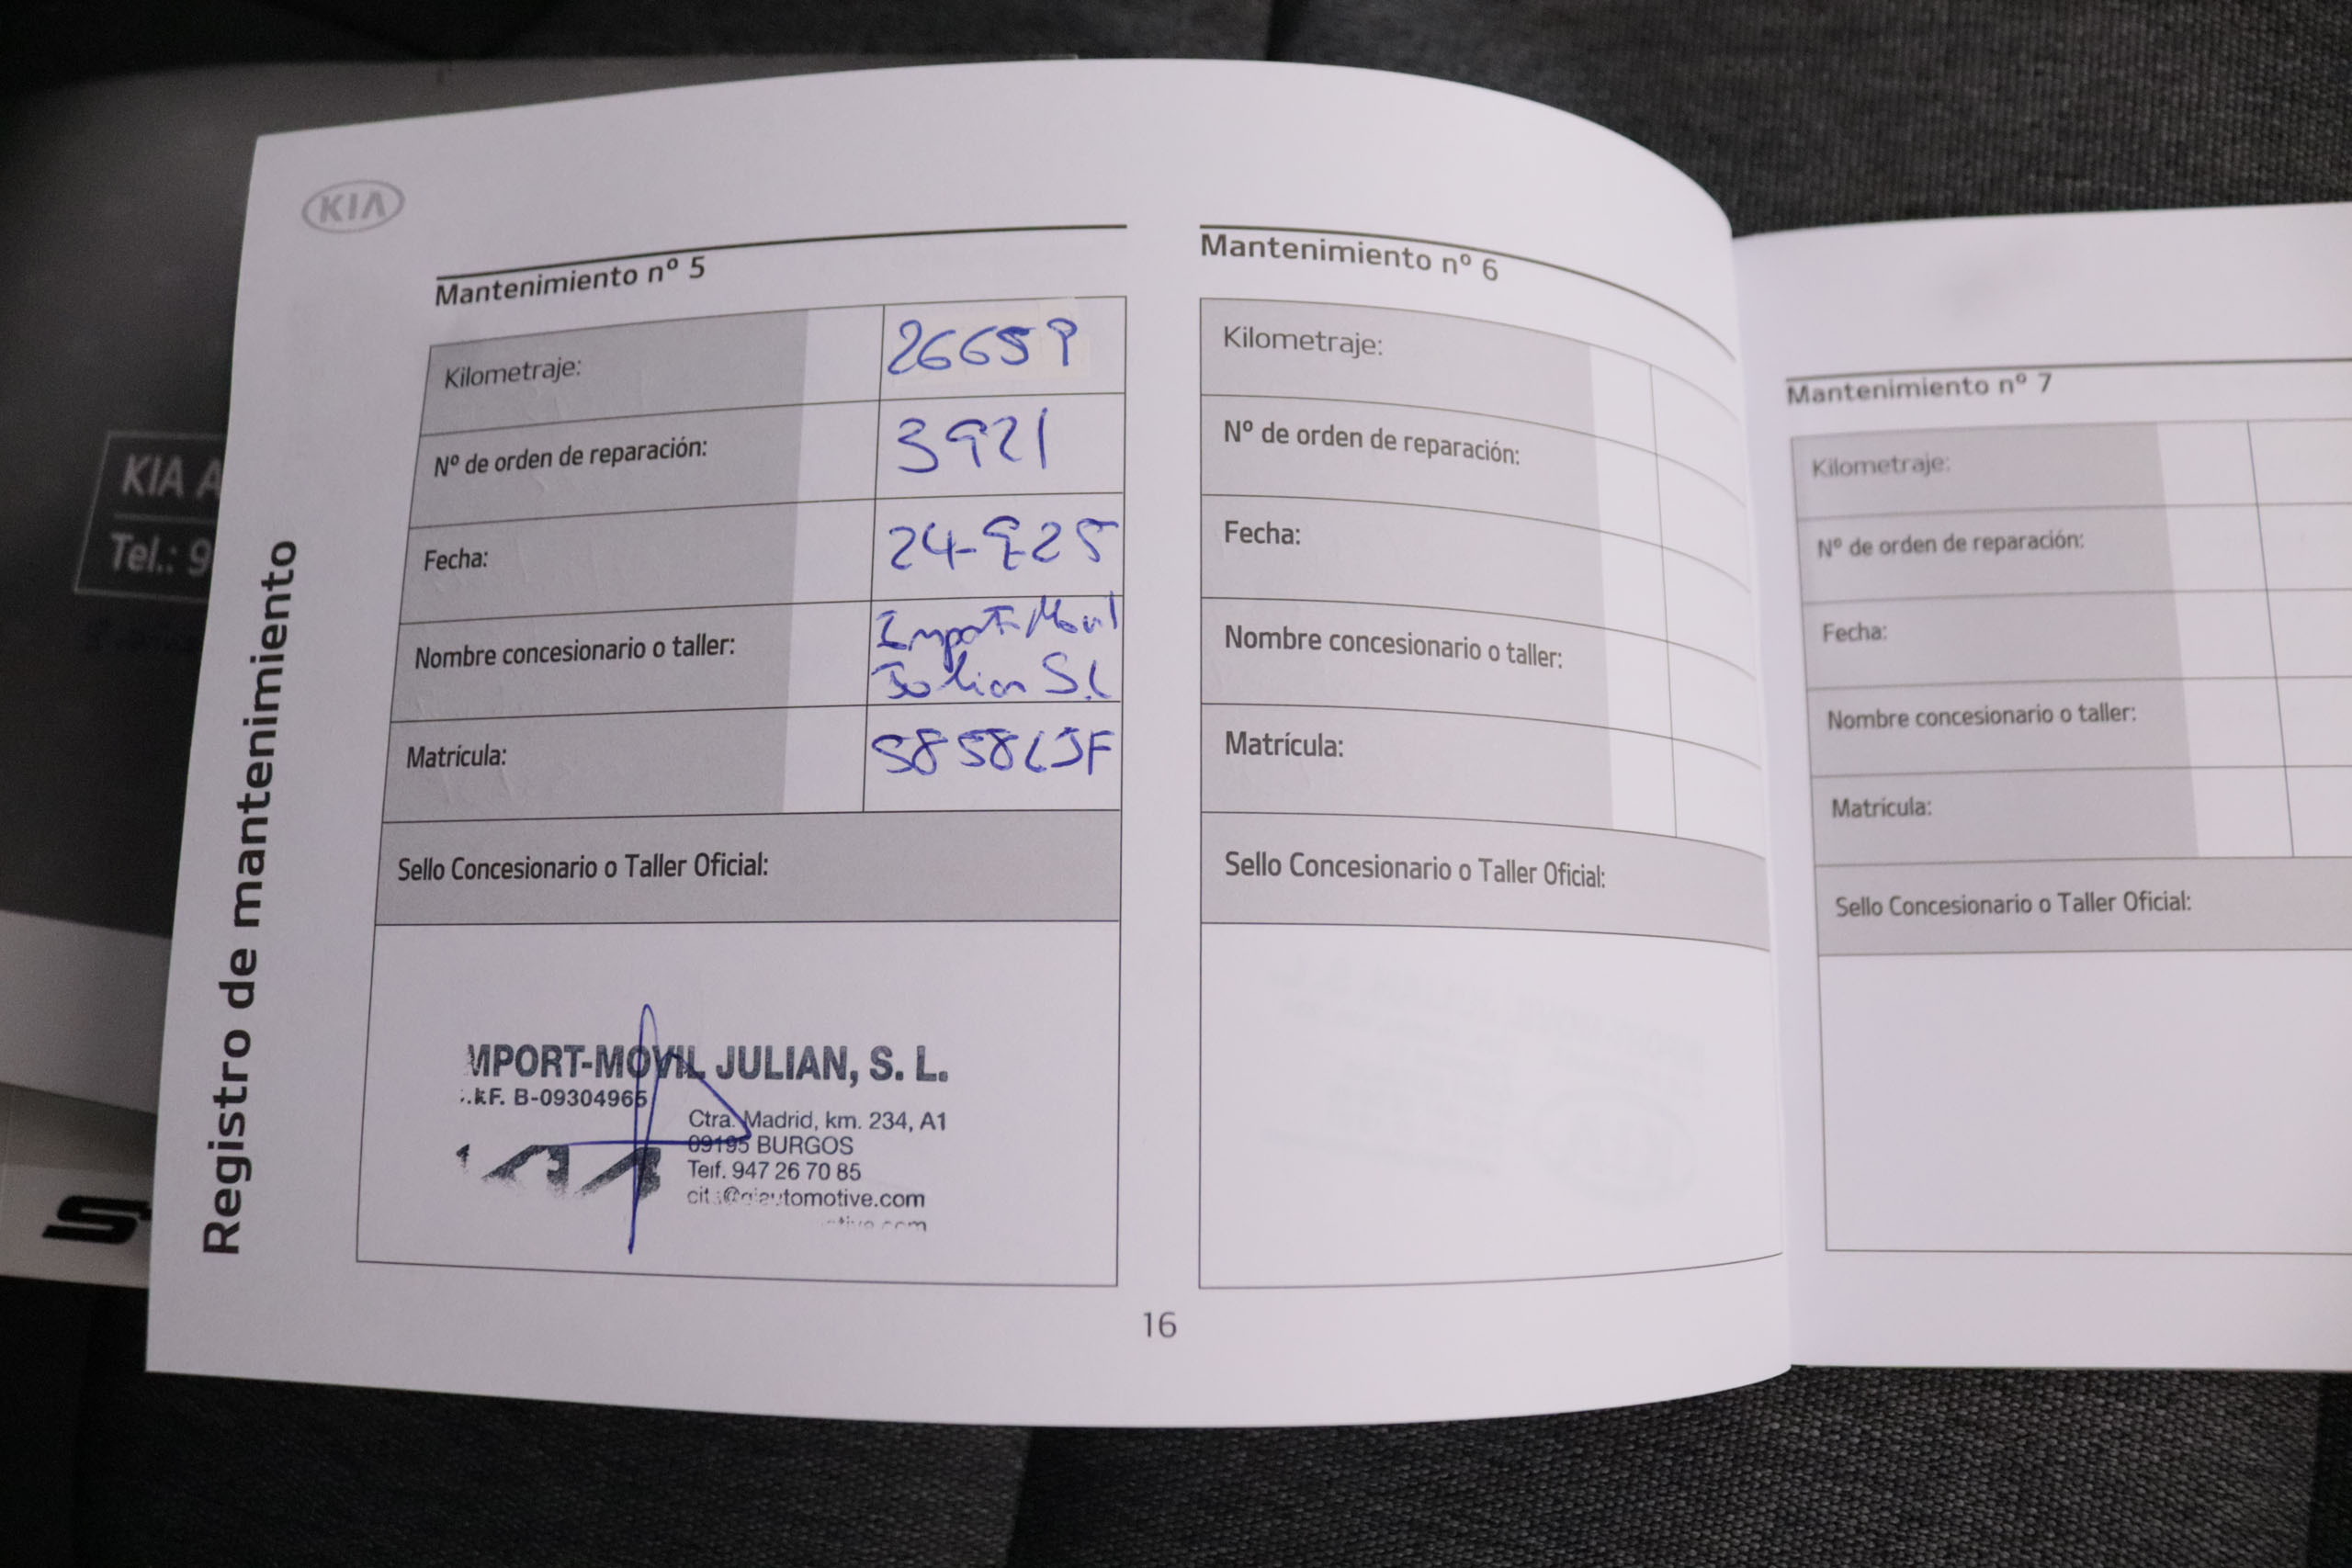 KIA
Registro de mantenimiento
Mantenimiento nº 5
Kilometraje: 26659
Nº de orden de reparación: 3921
Fecha: 24-9-25
Nombre concesionario o taller: Import-Movil
Julian S.L
Matrícula: 5858LJF
Sello Concesionario o Taller Oficial:
MPORT-MOVIL JULIAN, S. L.
F. B-09304965
Ctra. Madrid, km. 234, A1
09195 BURGOS
Telf. 947 26 70 85
Mantenimiento nº 6
Kilometraje:
Nº de orden de reparación:
Fecha:
Nombre concesionario o taller:
Matrícula:
Sello Concesionario o Taller Oficial:
16
Mantenimiento nº 7
Kilometraje:
Nº de orden de reparación:
Fecha:
Nombre concesionario o taller:
Matrícula:
Sello Concesionario o Taller Oficial:
KIA A
Tel.: 9